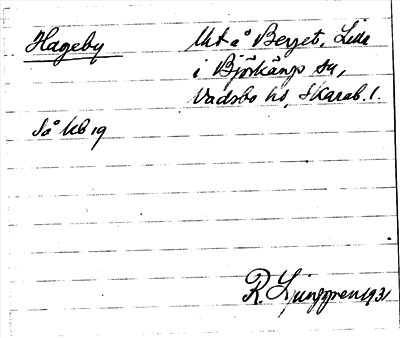 Hageby Utt å Berget, Lilla
i Björkängs sn,
Vadsbo hd, Skarab. l.
Så kb 19
R. Ljunggren 1931